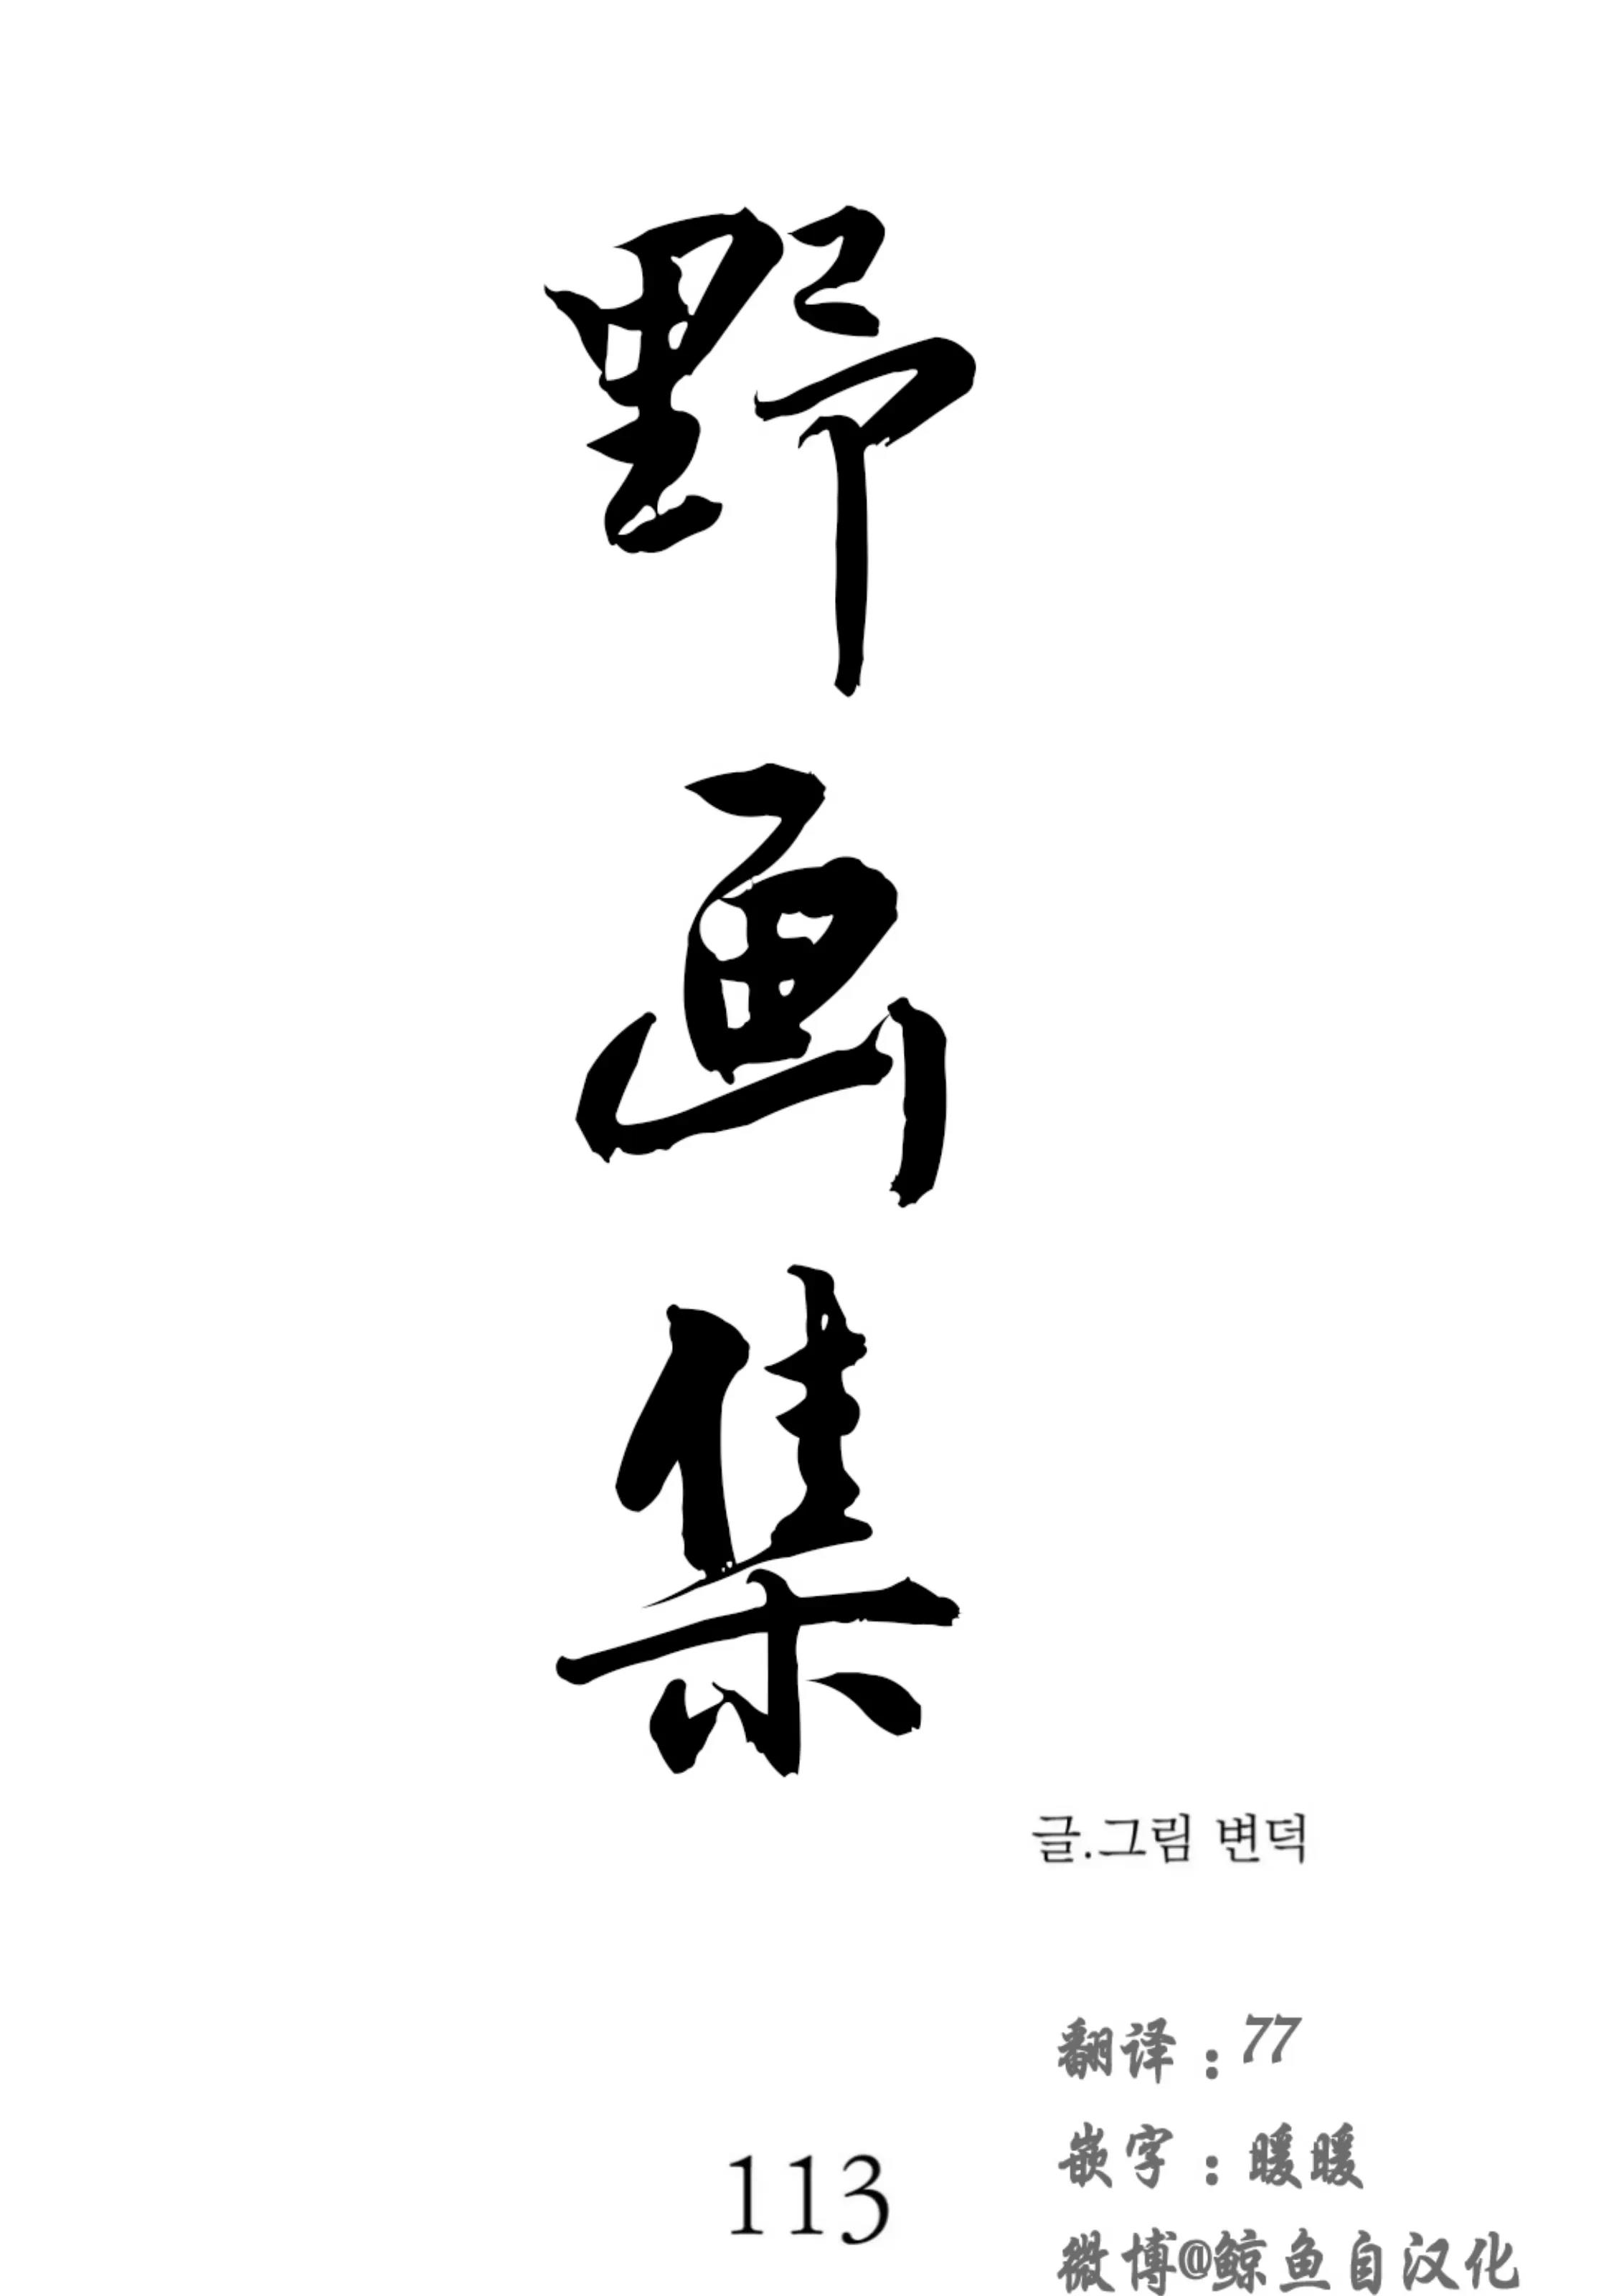 野
画
集
글.그림 변덕
翻译：77
嵌字：暖暖
113
微博@鲸鱼自汉化